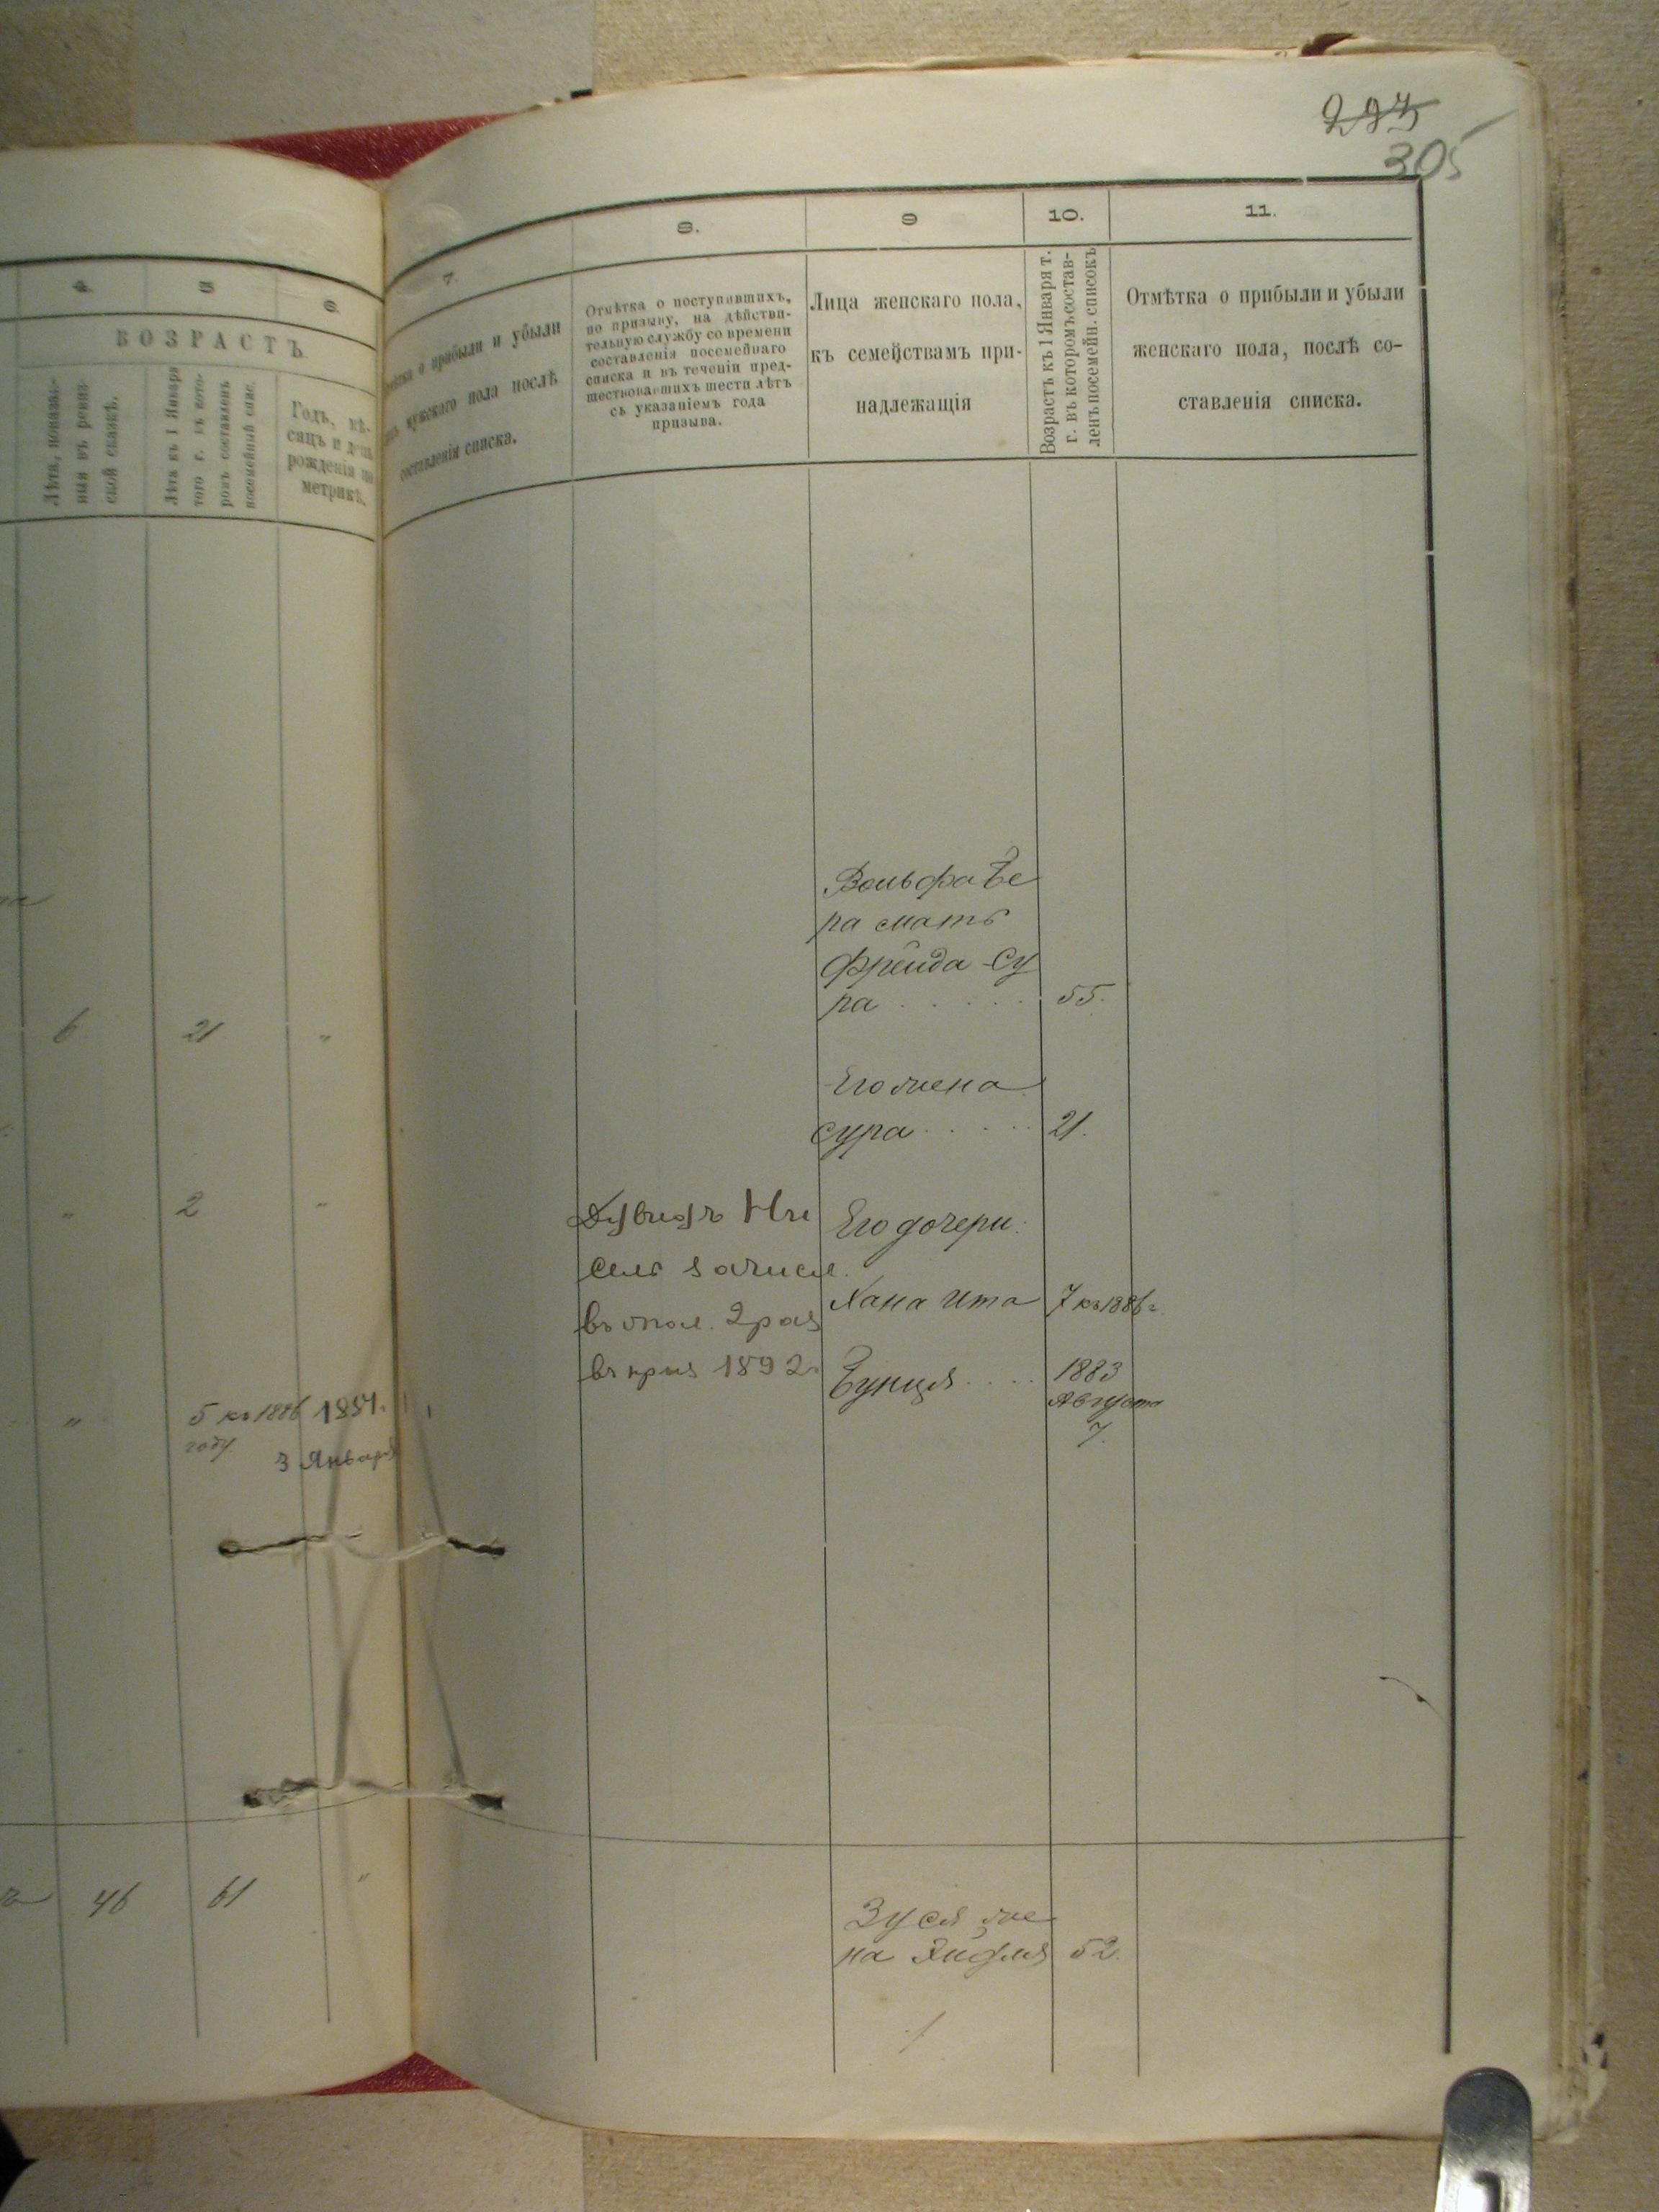 305
4. 5 6
ВОЗРАСТЪ
Лѣта, показан-
ныя въ ревиз-
ской сказкѣ.
Лѣта къ 1 Января
того г. въ кото-
ромъ составленъ
посемейный спис.
Годъ, мѣ-
сяцъ и день
рожденія по
метрикѣ.
6 21 "
" 2 "
" 5 къ 1886
году.
3 Января
46 61 "
7. 8. 9 10. 11.
о прибыли и убыли
мужскаго пола послѣ
составленія списка.
Отмѣтка о поступившихъ,
по призыву, на дѣйстви-
тельную службу со времени
составленія посемейнаго
списка и въ теченіи пред-
шествовавшихъ шести лѣтъ
съ указаніемъ года
призыва.
Лица женскаго пола,
къ семействамъ при-
надлежащія
Возрастъ къ 1 Января т.
г. въ которомъ состав-
ленъ посемейн. списокъ
Отмѣтка о прибыли и убыли
женскаго пола, послѣ со-
ставленія списка.
Вольфа Бе
ра мать
Фрейда-Су
ра . . . . . 55.
Его жена
Сура . . . . . 21.
Его дочери:
Хана Ита 7 къ 1886 г.
Бунця . . . . 1883
Августа
7.
сель зачисл.
въ опол. 2 раз
въ приз 1892 г
Зуся же
на 52.